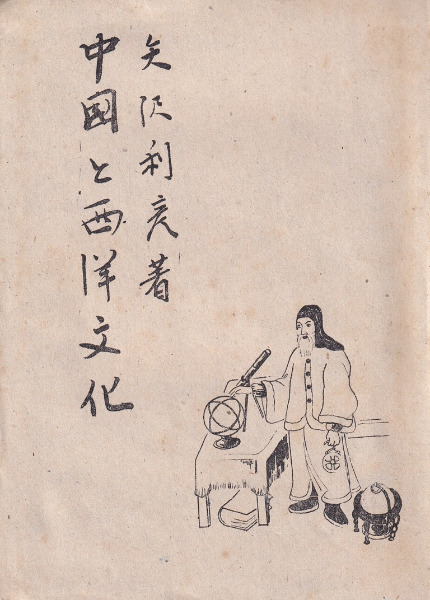 矢沢利彦著
中國と西洋文化